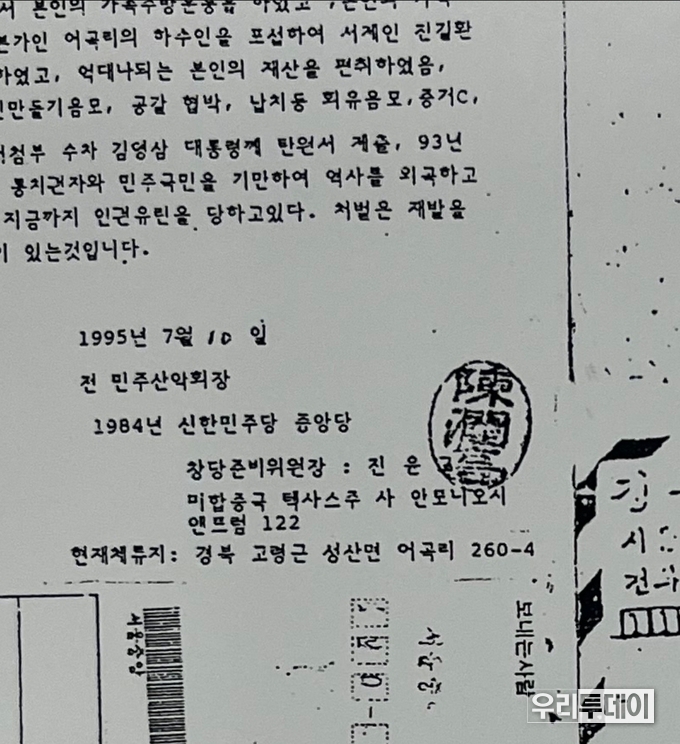 서 본인의 가족추방운동을 하였고
본가인 어곡리의 하수인을 포섭하여 서제인 진길환
하였고, 억대나되는 본인의 재산을 편취하였음,
인만들기음모, 공갈 협박, 납치등 회유음모,증거C,
첨부 수차 김영삼 대통령께 탄원서 제출, 93년
통치권자와 민주국민을 기만하여 역사를 외곡하고
지금까지 인권유린을 당하고있다. 처벌은 재발을
이 있는것입니다.
1995년 7월 10 일
전 민주산악회장
1984년 신한민주당 중앙당
창당준비위원장 : 진 윤
陳潤
미합중국 텍사스주 사 안모니오시
앤뜨럼 122
현재체류지: 경북 고령군 성산면 어곡리 260-4
진
시
건
서울중앙
보내는사람
우리투데이